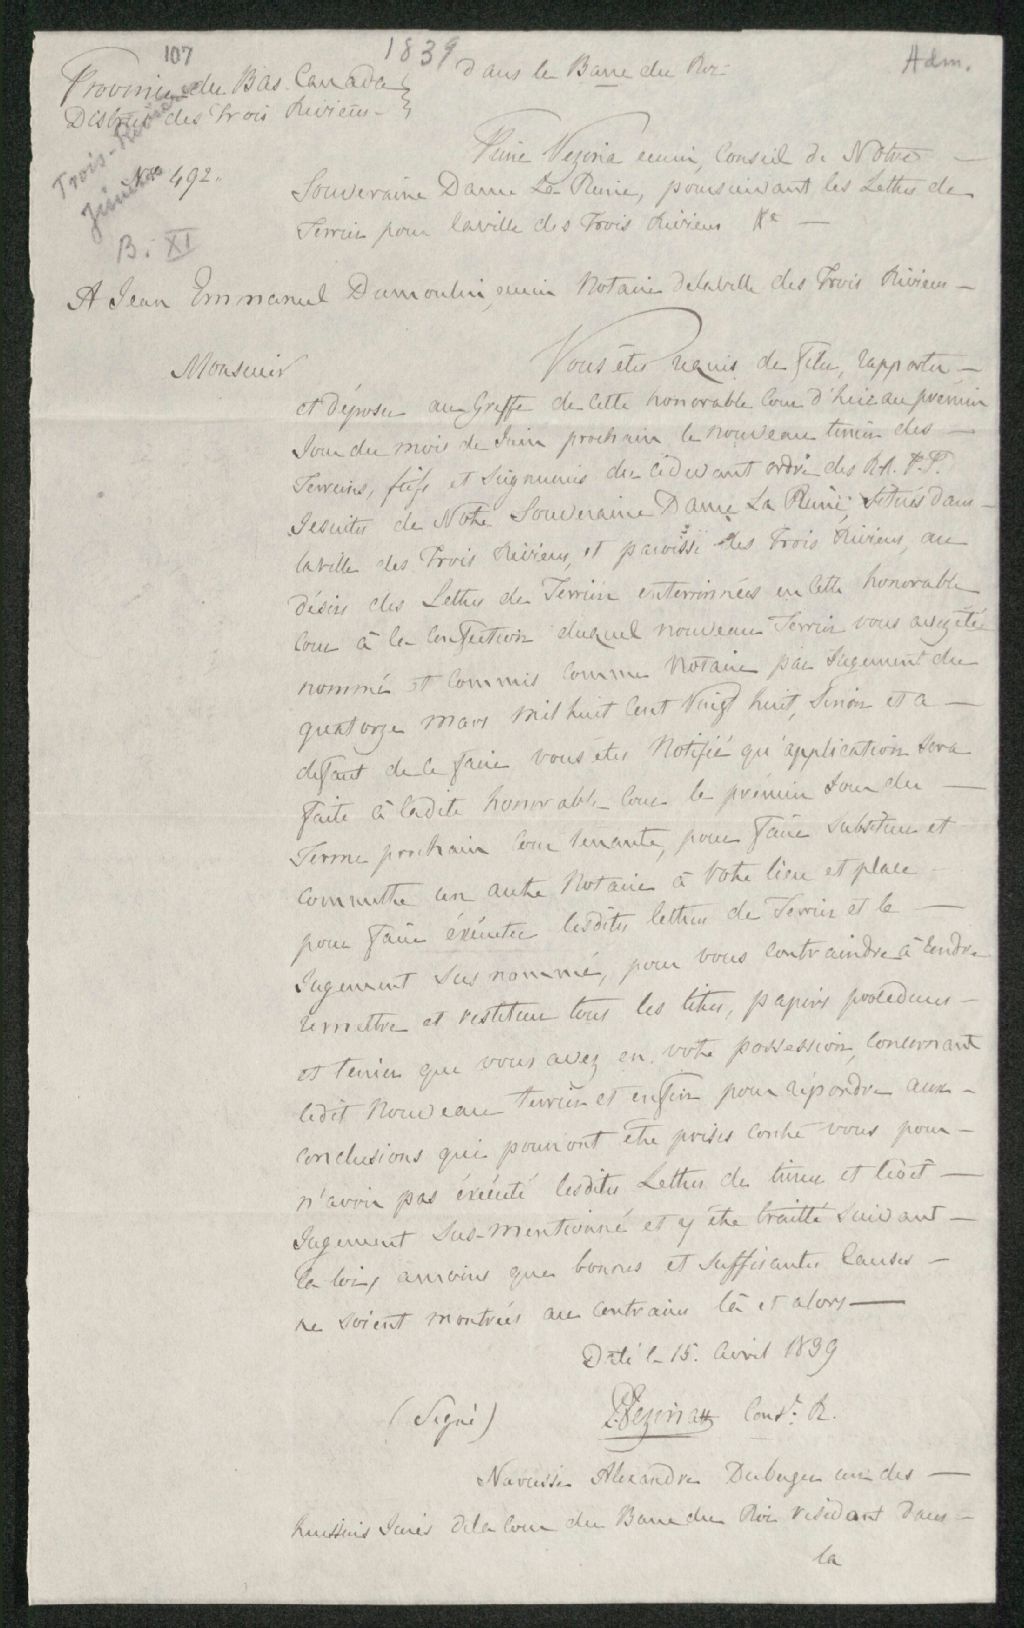 107
1839
Adm.
Province du Bas Canada } dans le Banc du Roi
District des Trois Rivieres
Trois-Rivières
Jésuites
No. 492.
B. XI
Pierre Vezina ecuier, Conseil de Notre —
Souveraine Dame La Reine, poursuivant les Lettres de
Terrier pour la ville des Trois Rivieres Re —
A Jean Emmanuel Dumoulin, ecuier Notaire de la ville des Trois Rivieres —
Monsieur
Vous êtes requis de filer, rapporter —
et déposer au Greffe de cette honorable Cour d'hui au prémier
Jour du mois de Juin prochain le nouveau terrier des —
Terreins, fiefs et Seigneuries du cidevant ordre des R.R. P.P.
Jesuites de Notre Souveraine Dame La Reine, situés dans —
la ville des Trois Rivieres, et paroisse des Trois Rivieres, au
désir des Lettres de Terrier enterrinnées en cette honorable
Cour à la Confection duquel nouveau Terrier vous avez été
nommé et commis comme Notaire par Jugement du
quatorze mars mil huit Cent Vingt huit, Sinon et a —
defaut de le faire vous êtes Notifié qu'application sera
faite à ladite honorable Cour le prémier Jour du —
Terme prochain Cour tenante, pour faire substituer et
commettre un autre Notaire à votre lieu et place —
pour faire éxécuter lesdites lettres de Terrier et le —
Jugement sus nommé, pour vous contraindre à rendre
remettre et restituer tous les titres, papiers procedures —
et terrier que vous avez en votre possession, concernant
ledit Nouveau terrier et enfin pour répondre aux —
conclusions qui pourront être prises contre vous pour —
n'avoir pas éxécuté lesdites Lettres de terrier et ledit —
Jugement Sus-mentionné et y être traitté suivant —
la loi, amoins que bonnes et suffisantes Causes —
ne soient montrées au contraire là et alors —
Daté le 15. Avril 1839
(Signé) P. Vezina Consr. R.
Narcisse Alexandre Duberger un des —
huissiers Jurés de la Cour du Banc du Roi résidant dans —
la